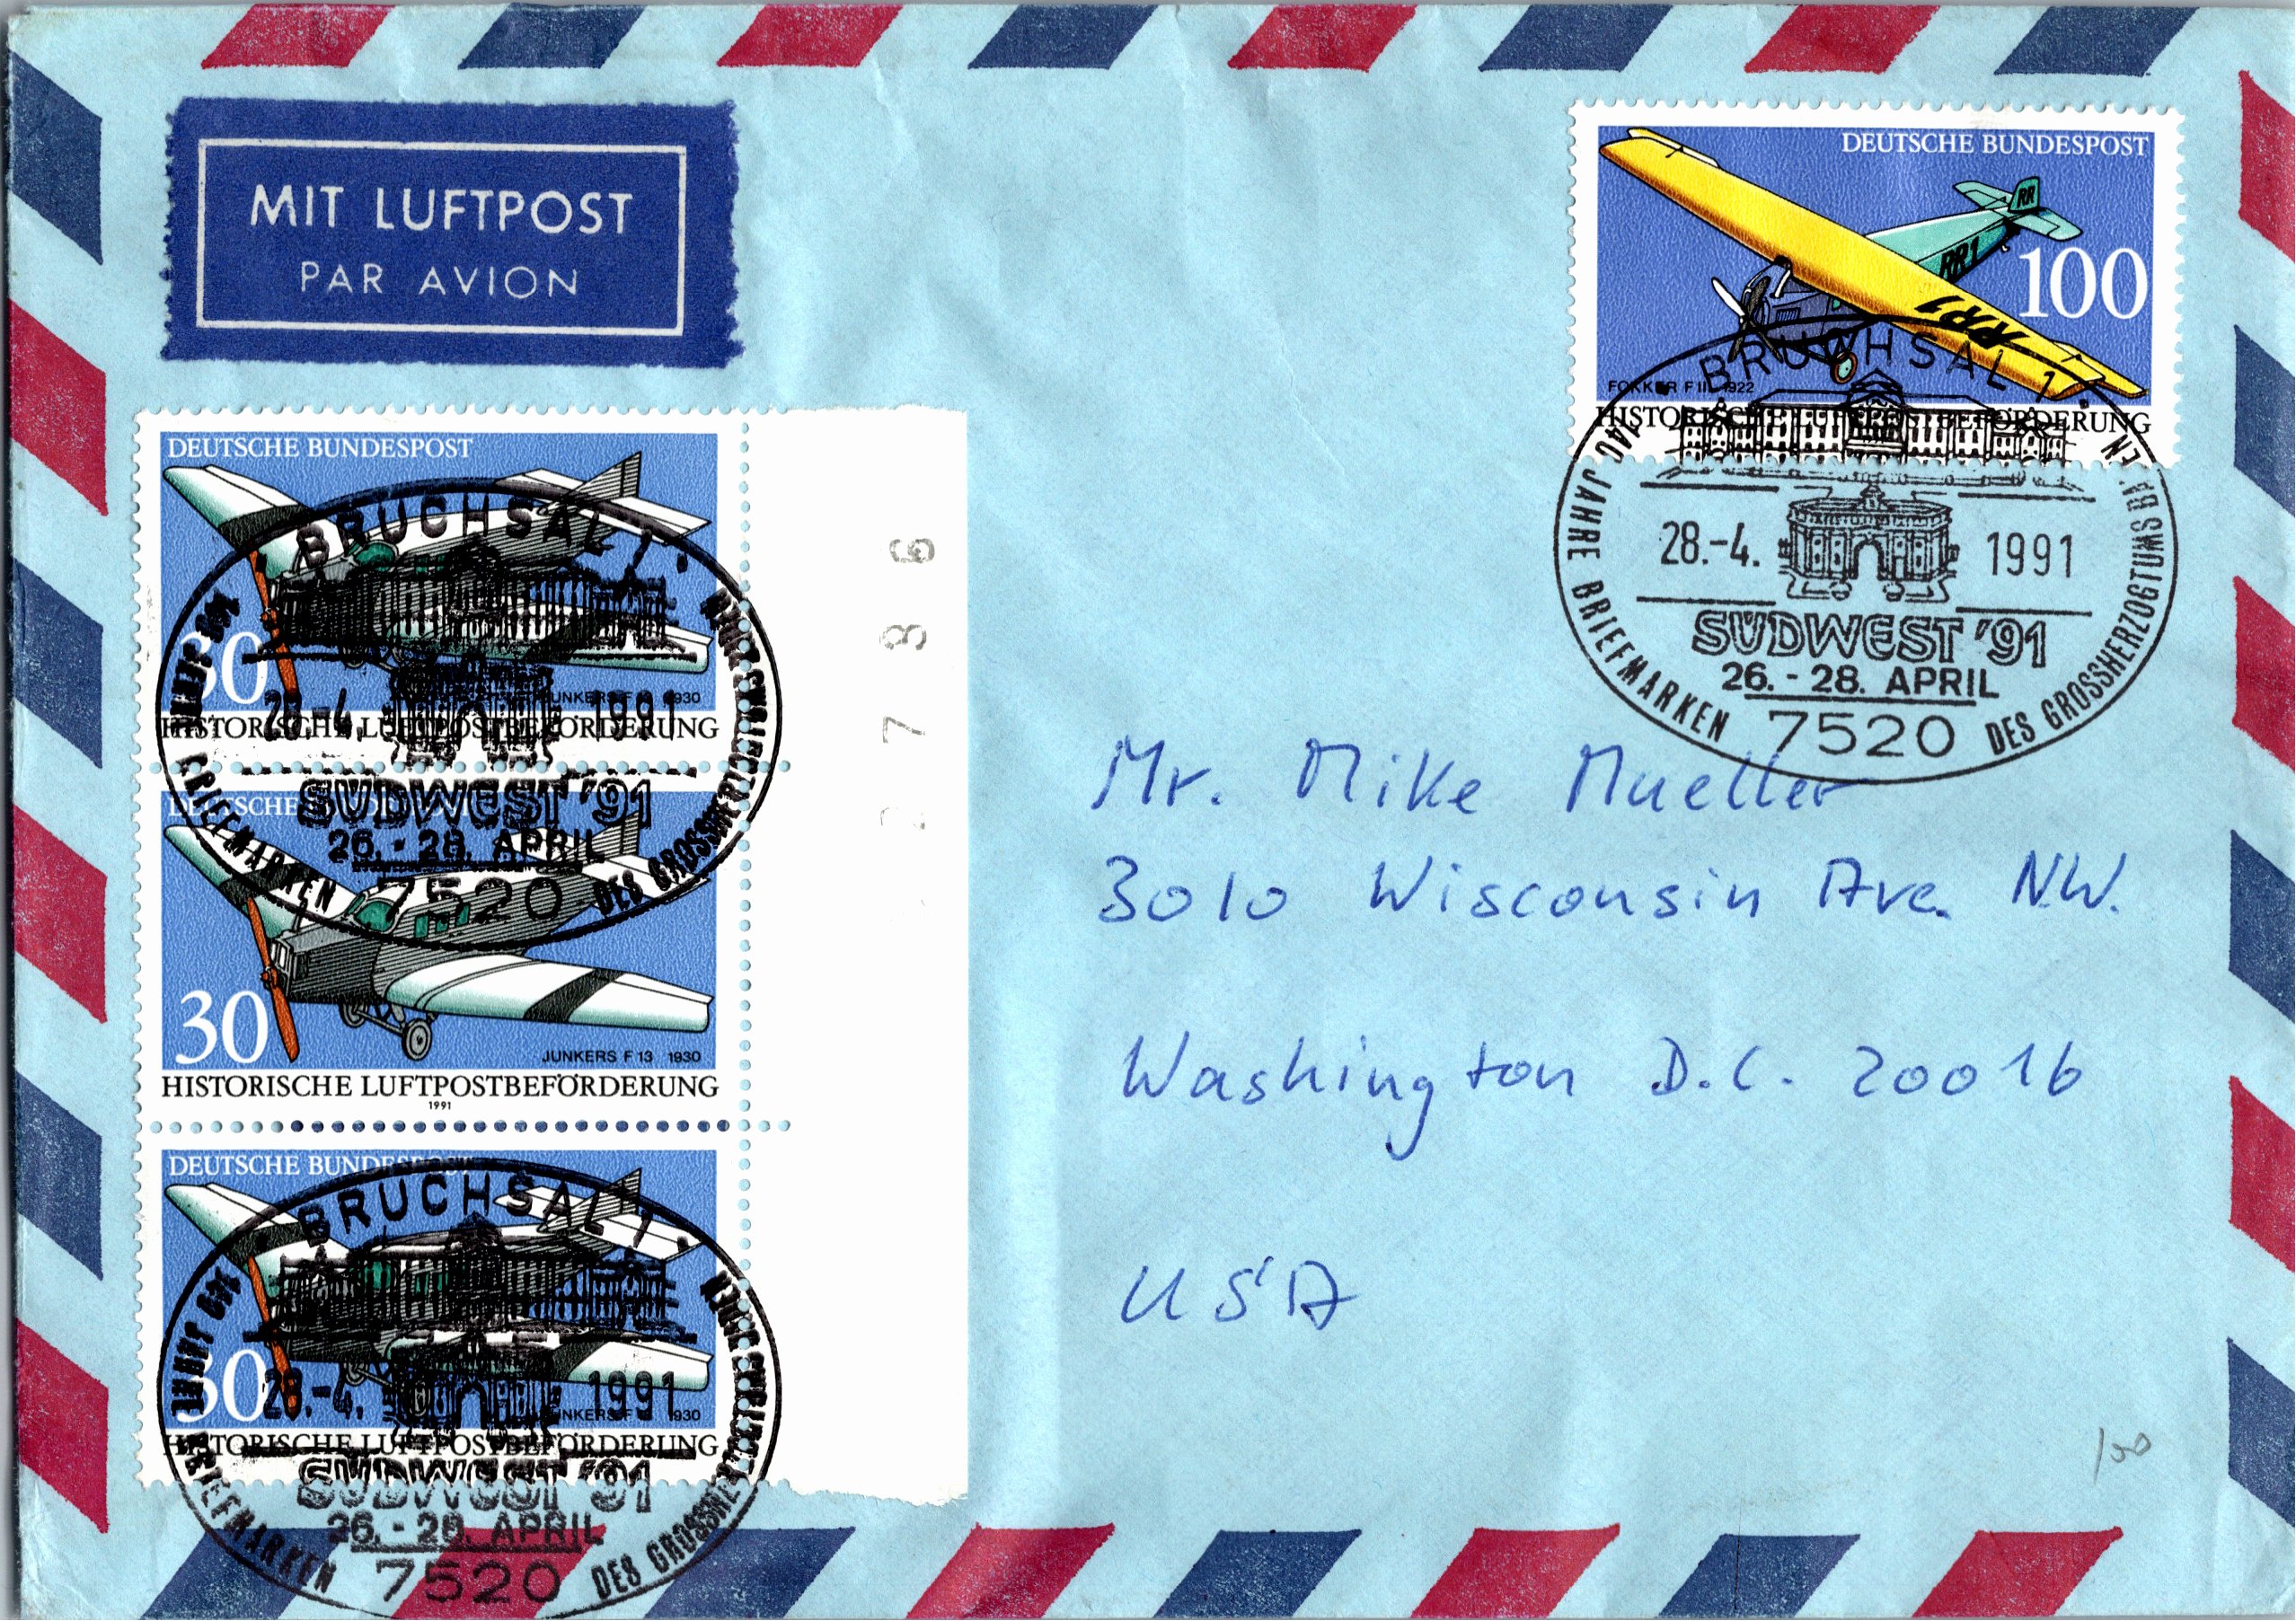 MIT LUFTPOST
PAR AVION
DEUTSCHE BUNDESPOST
RR
RR1
100
RR1
FOKKER F III 1922
HISTORISCHE LUFTPOSTBEFÖRDERUNG
BRUCHSAL 1
28.-4. 1991
SÜDWEST '91
26. - 28. APRIL
7520
JAHRE BRIEFMARKEN DES GROSSHERZOGTUMS BADEN
DEUTSCHE BUNDESPOST
30
JUNKERS F 13 1930
HISTORISCHE LUFTPOSTBEFÖRDERUNG
BRUCHSAL 1
28.-4. 1991
SÜDWEST '91
26. - 28. APRIL
7520
BRIEFMARKEN DES
DEUTSCHE
30
JUNKERS F 13 1930
HISTORISCHE LUFTPOSTBEFÖRDERUNG
1991
DEUTSCHE BUNDESPOST
30
JUNKERS F 13 1930
HISTORISCHE LUFTPOSTBEFÖRDERUNG
BRUCHSAL 1
28.-4. 1991
SÜDWEST '91
26. - 28. APRIL
7520
BRIEFMARKEN DES
Mr. Mike Mueller
3010 Wisconsin Ave. N.W.
Washington D.C. 20016
USA